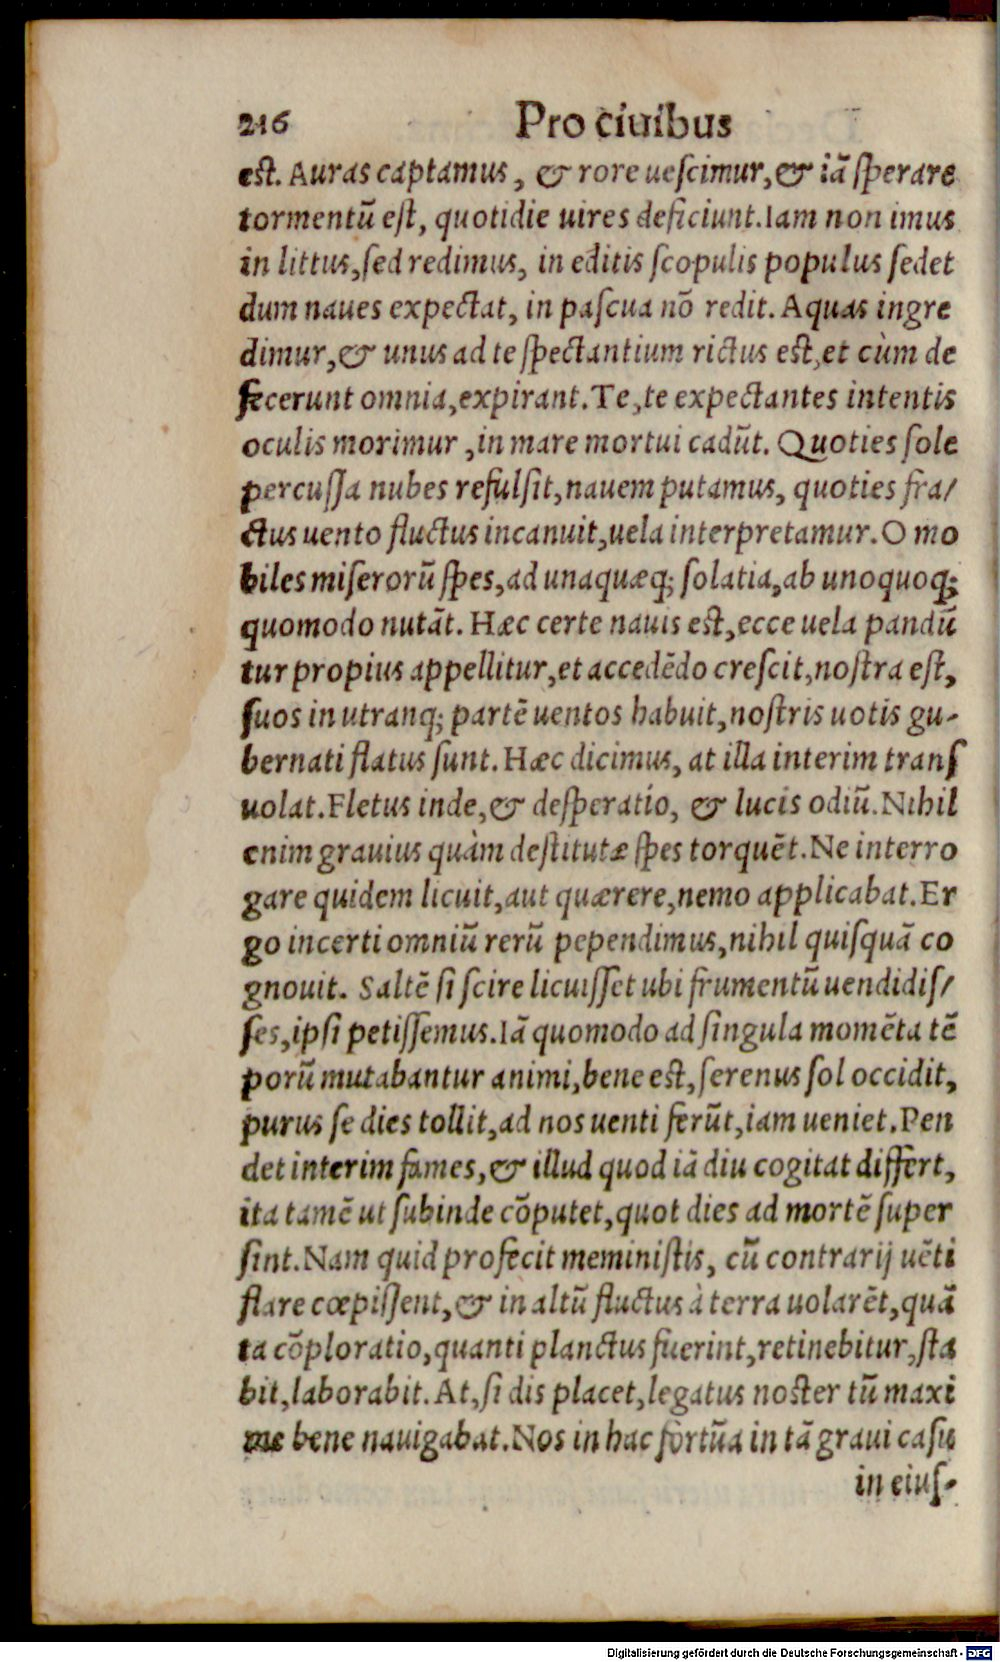 216 Pro ciuibus
est. Auras captamus, & rore uescimur, & iã sperare
tormentũ est, quotidie uires deficiunt. Iam non imus
in littus, sed redimus, in editis scopulis populus sedet
dum naues expectat, in pascua nõ redit. Aquas ingre
dimur, & unus ad te spectantium rictus est, et cùm de
fecerunt omnia, expirant. Te, te expectantes intentis
oculis morimur, in mare mortui cadũt. Quoties sole
percussa nubes refulsit, nauem putamus, quoties fra/
ctus uento fluctus incanuit, uela interpretamur. O mo
biles miserorũ spes, ad unaquæq; solatia, ab unoquoq;
quomodo nutãt. Hæc certe nauis est, ecce uela pandũ
tur propius appellitur, et accedẽdo crescit, nostra est,
suos in utranq; partẽ uentos habuit, nostris uotis gu-
bernati flatus sunt. Hæc dicimus, at illa interim trans
uolat. Fletus inde, & desperatio, & lucis odiũ. Nihil
enim grauius quàm destitutæ spes torquẽt. Ne interro
gare quidem licuit, aut quærere, nemo applicabat. Er
go incerti omniũ rerũ pependimus, nihil quisquã co
gnouit. Saltẽ si scire licuisset ubi frumentũ uendidis/
ses, ipsi petissemus. Iã quomodo ad singula momẽta tẽ
porũ mutabantur animi, bene est, serenus sol occidit,
purus se dies tollit, ad nos uenti ferũt, iam ueniet. Pen
det interim fames, & illud quod iã diu cogitat differt,
ita tamẽ ut subinde cõputet, quot dies ad mortẽ super
sint. Nam quid profecit meministis, cũ contrarij uẽti
flare cœpissent, & in altũ fluctus à terra uolarẽt, quã
ta cõploratio, quanti planctus fuerint, retinebitur, sta
bit, laborabit. At, si dis placet, legatus noster tũ maxi
me bene nauigabat. Nos in hac fortũa in tã graui casu
in eius-
Digitalisierung gefördert durch die Deutsche Forschungsgemeinschaft - DFG